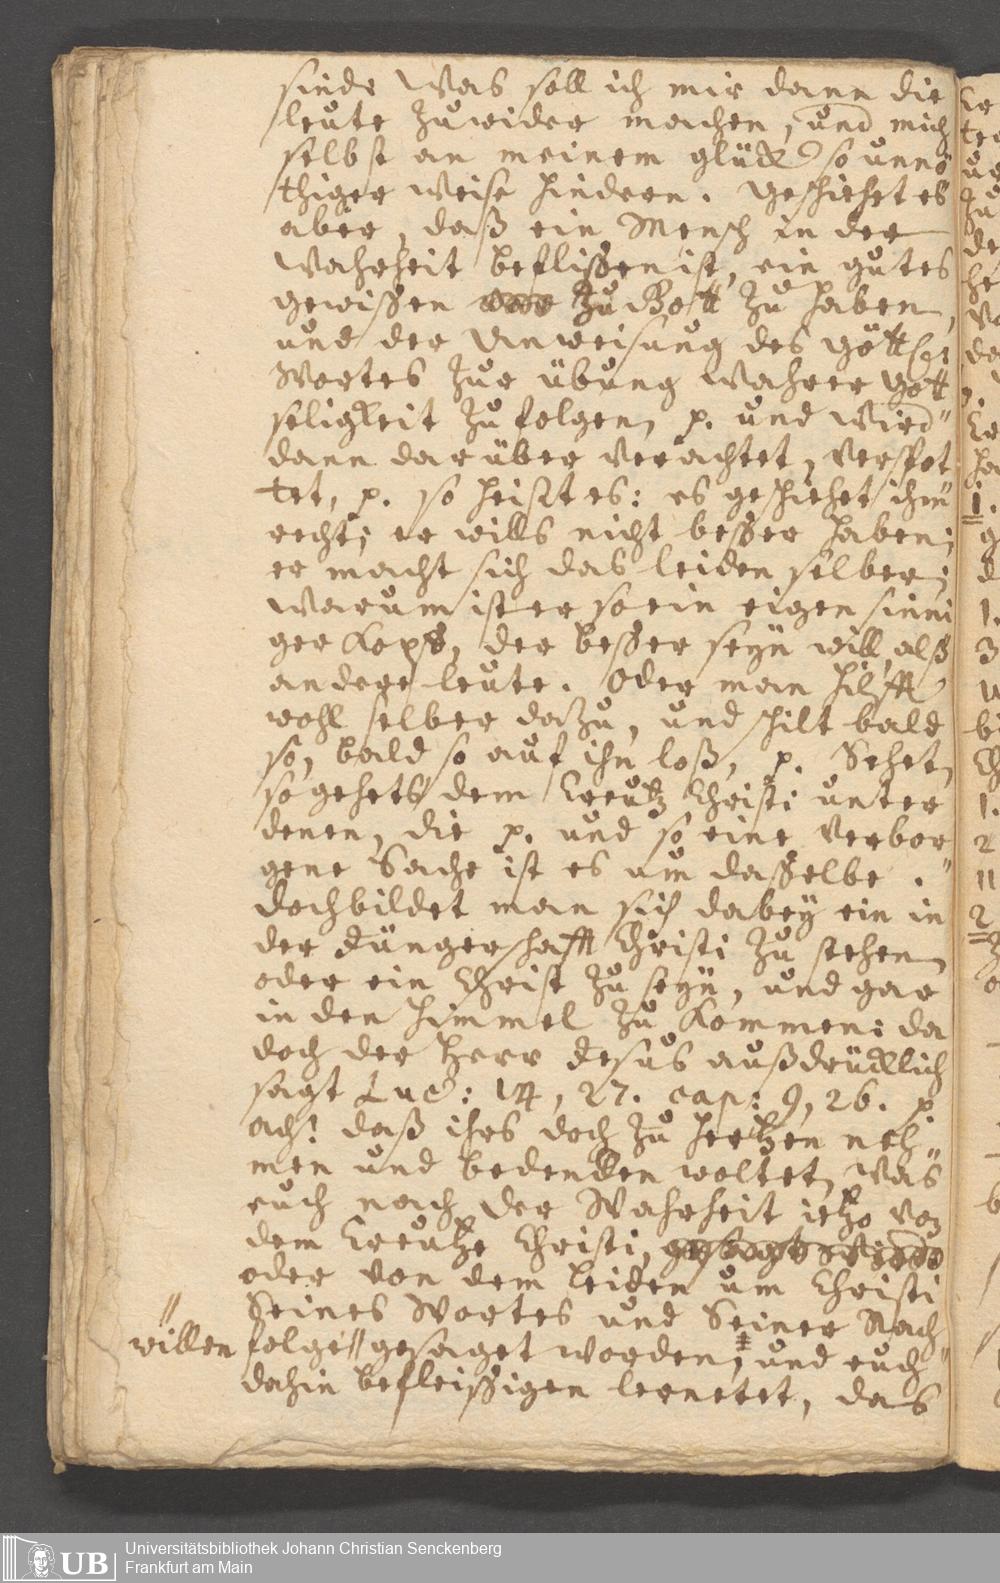 sinde Was soll ich mir dann die
leute zuwider machen, und mich
selbst an meinem glück so unnö
thiger Weise hindern. Geschiehet es
aber, daß ein Mensch in der
Wahrheit beflißen ist, ein gutes
gewißen zu Gott zu haben,
und der Anweisung des göttl.
Wortes zur übung wahrer Gott
seligkeit zu folgen, p. und wird
dann darüber verachtet, verspot
tet, p. so heist es: es geschiehet ihm
recht; er wills nicht beßer haben;
er macht sich das leiden selber;
warum ist er so ein eigen sinni
ger Kopf, der beßer seyn will, alß
andere leute. Oder man hilfft
wohl selber dazu, und schilt bald
so, bald so auf ihn loß, p. Sehet,
so gehets dem Creutz Christi unter
denen, die p. und so eine Verbor
gene Sache ist es um daßelbe.
doch bildet man sich dabey ein in
der Jüngerschafft Christi zu stehen,
oder ein Christ zu seyn, und gar
in den himmel zu Kommen: da
doch der Herr Jesus außdrücklich
sagt Luc: 14, 27. cap: 9, 26. p.
ach! daß ihrs doch zu hertzen neh
men und bedencken woltet, was
euch nach der Wahrheit ietzo von
dem Creutze Christi, gesagt wird
oder von dem leiden um Christi
Seines Wortes und Seiner Nach
willen folge // gesaget worden, und euch
dahin befleißigen lernetet, das
Universitätsbibliothek Johann Christian Senckenberg
Frankfurt am Main
UB